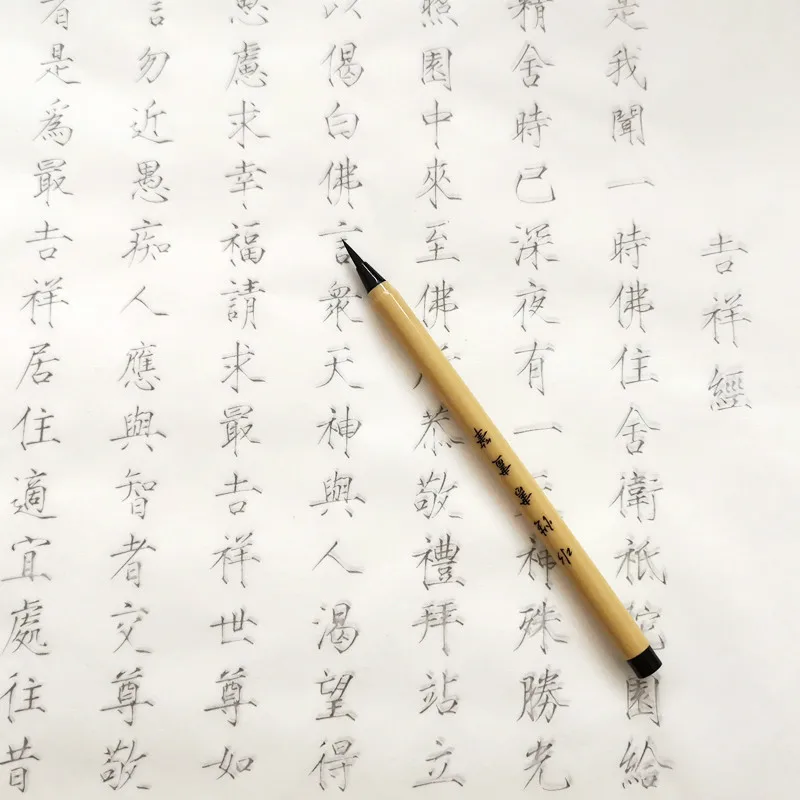 吉祥經
是我聞一時佛住舍衛祇陀園給
精舍時已深夜有一神殊勝光
照園中來至佛恭敬禮拜站立
以偈白佛言衆天神與人渴望得
思慮求幸福請求最吉祥世尊如
言勿近愚痴人應與智者交尊敬
者是爲最吉祥居住適宜處往昔